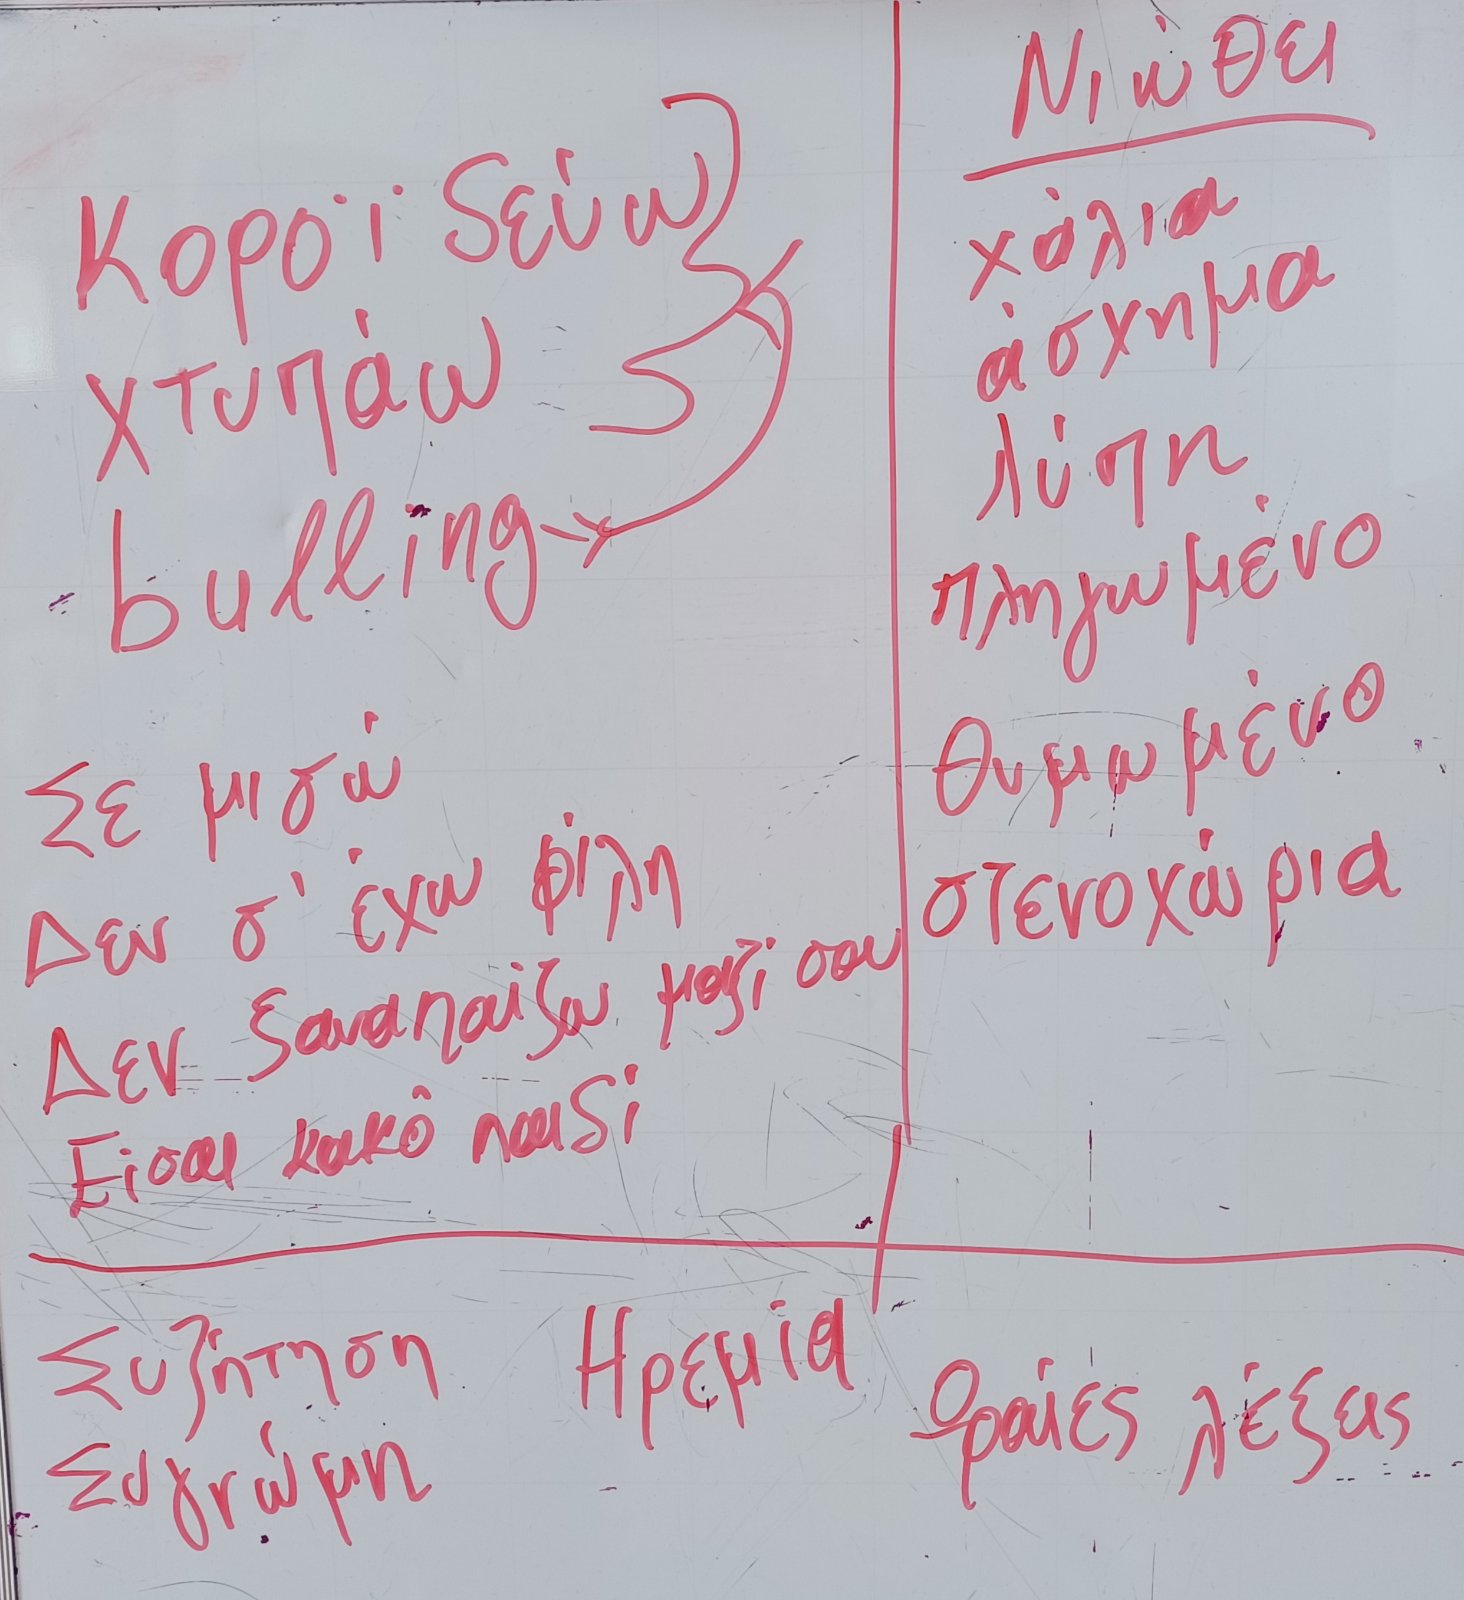 Κοροϊδεύω
χτυπάω
bulling
Σε μισώ
Δεν σ' έχω φίλη
Δεν ξαναπαίζω μαζί σου
Είσαι κακό παιδί
Νιώθει
χάλια
άσχημα
λύπη
πληγωμένο
θυμωμένο
στενοχώρια
Συζήτηση
Ηρεμία
Συγνώμη
Ωραίες λέξεις